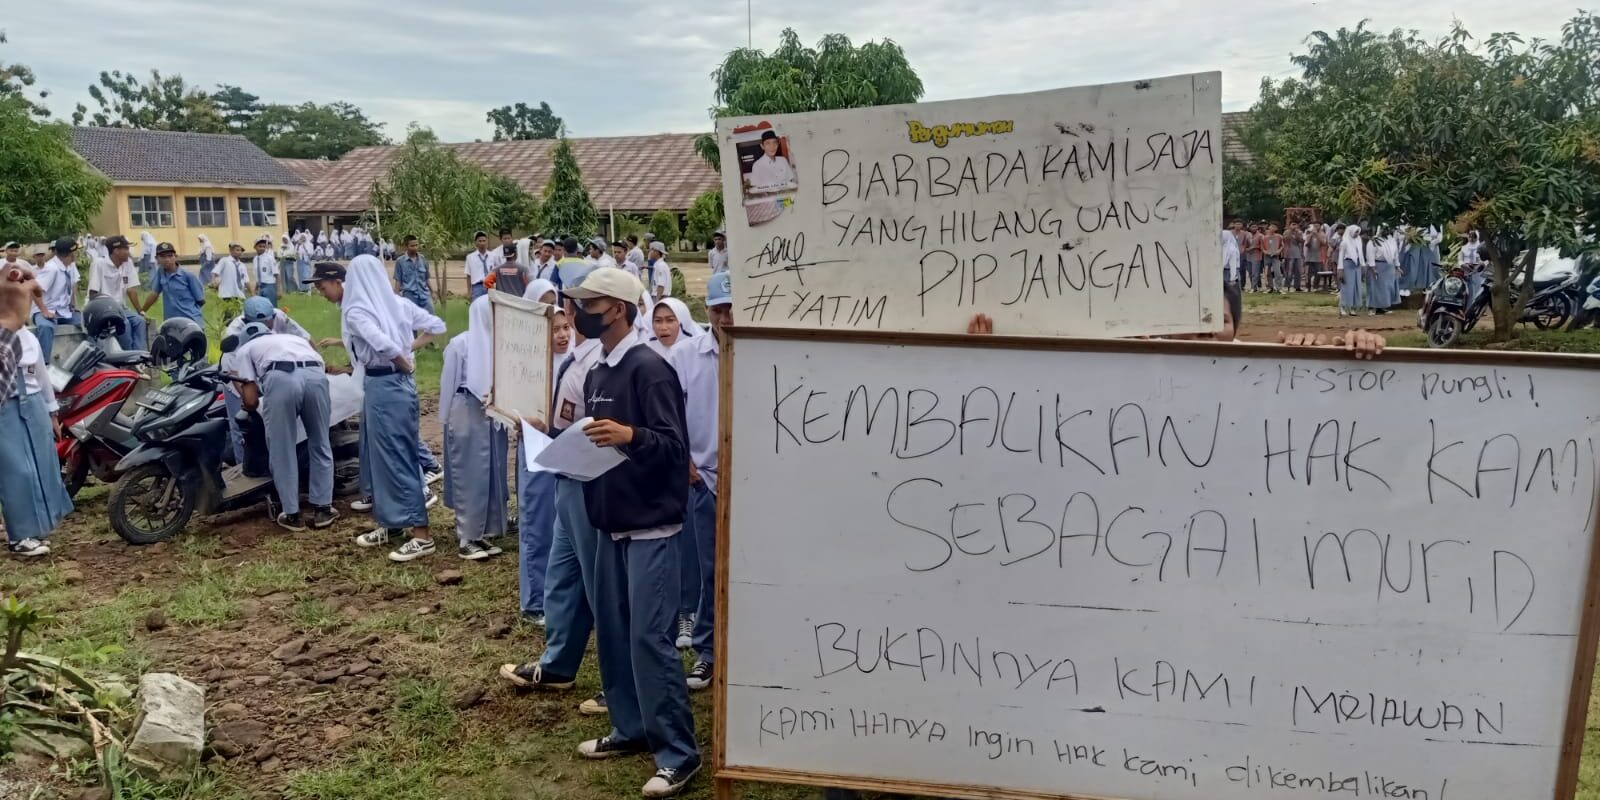 Pengumuman
BIAR BAPA KAMI SAJA
YANG HILANG UANG
PIP JANGAN
#YATIM
#STOP Pungli!
KEMBALIKAN HAK KAMI
SEBAGAI MURID
BUKANNYA KAMI MELAWAN
KAMI HANYA Ingin HAK Kami dikembalikan!